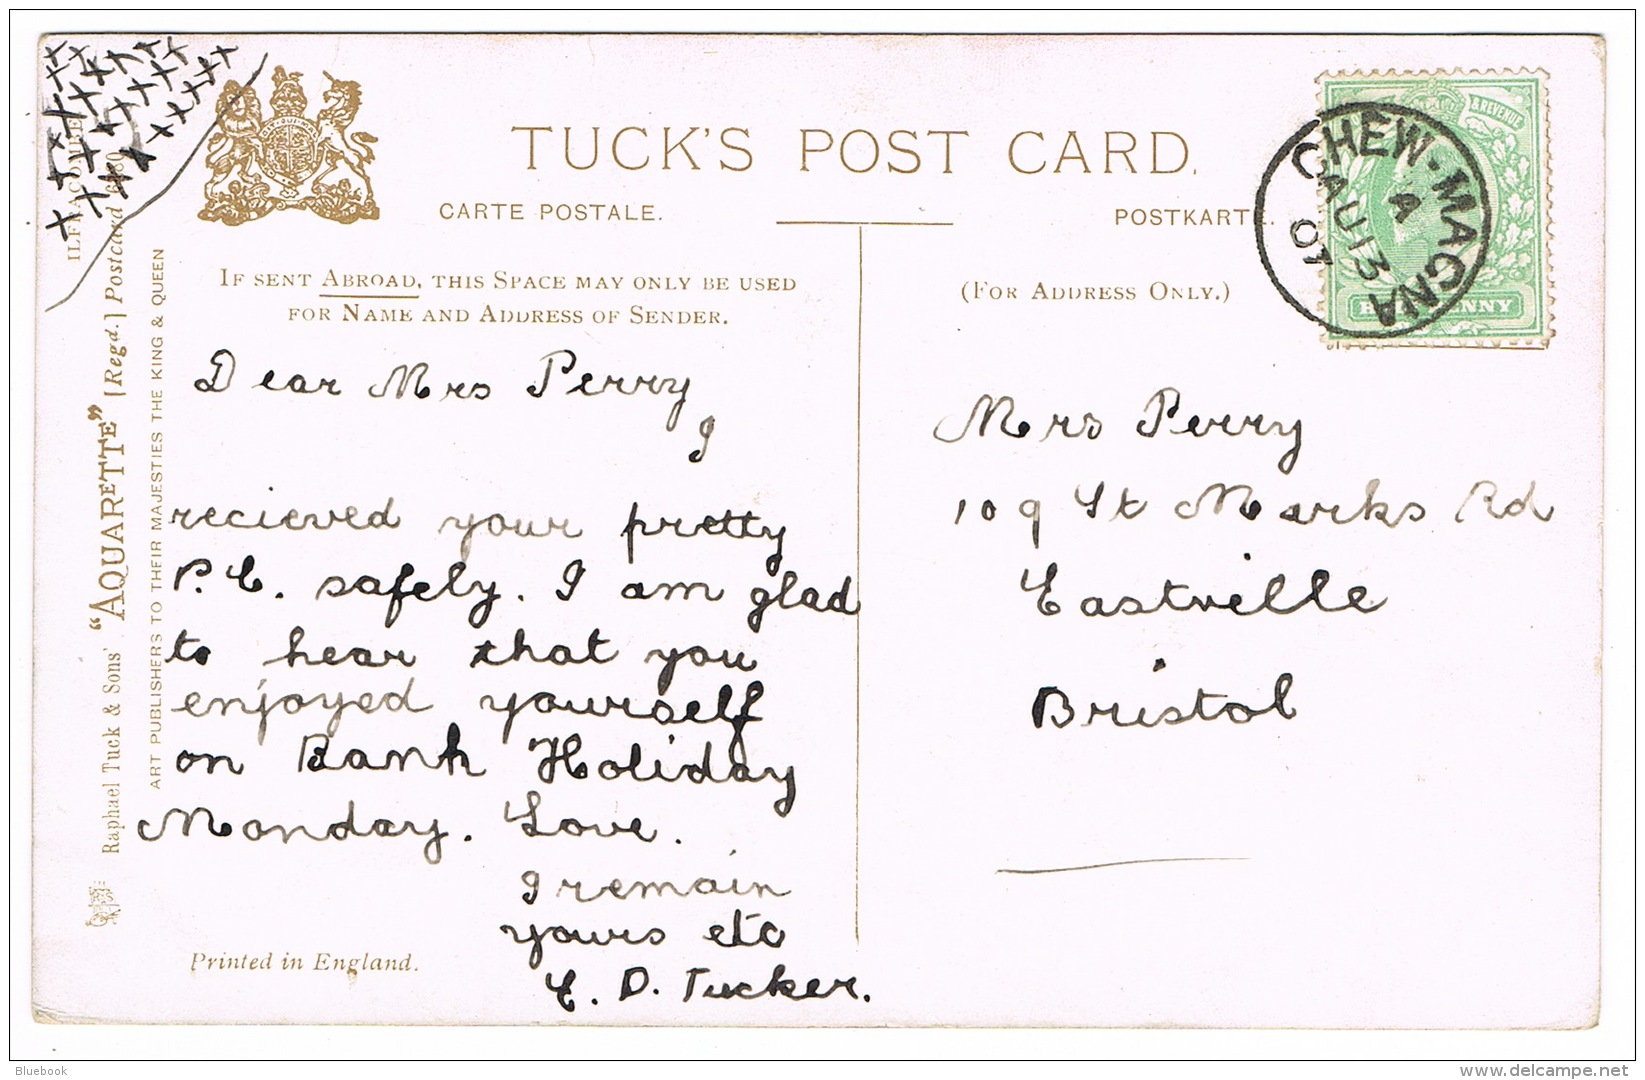 TUCK'S POST CARD.
CARTE POSTALE.
POSTKARTE.
IF SENT ABROAD, THIS SPACE MAY ONLY BE USED
FOR NAME AND ADDRESS OF SENDER.
(FOR ADDRESS ONLY.)
& REVENUE
CHEW-MAGNA
A
AU 13
07
Dear Mrs Perry,
I
recieved your pretty
P.C. safely. I am glad
to hear that you
enjoyed yourself
on Bank Holiday
Monday. Love.
I remain
yours etc
E. D. Tucker.
Mrs Perry
109 St Marks Rd
Eastville
Bristol
ILFRACOMBE
Raphael Tuck & Sons' "AQUARETTE" [Regd.] Postcard
ART PUBLISHERS TO THEIR MAJESTIES THE KING & QUEEN
Printed in England.
Bluebook
www.delcampe.net